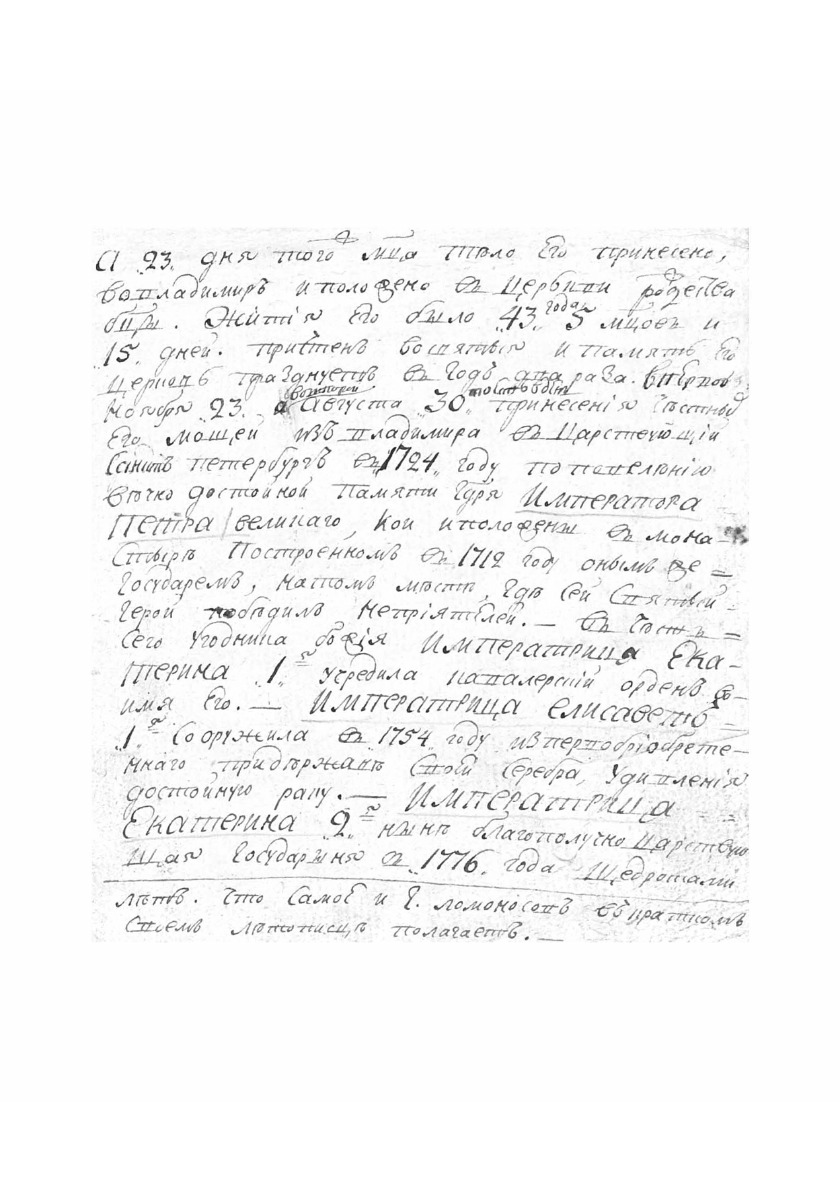 А 23. дня того мца тѣло Его принесено,
во владимиръ и положено въ Церькви рождества
бцы. Житія Его было 43. года 5 мцовъ и
15. дней. причтенъ во святыя и память Его
церковь празднуетъ въ годъ два раза. впервое
Ноября 23. а вовторой Августа 30. тоесть въ день принесенія честныхъ
Его мощей изъ владимира въ Царствующій
Санктъ петербургъ въ 1724. году по повелѣнію
вѣчно достойной памяти Гдря Императора
Петра великаго, кои и положены въ мона-
стырѣ Построенномъ въ 1712 году онымъ же =
Государемъ, на томъ мѣстѣ, гдѣ сей Святый
герой побѣдилъ непріятелей. — въ честь =
сего Угодника божія Императрица Ека-
терина 1.я учредила кавалерскій орденъ во-
имя Его. — Императрица елисаветъ =
1.я Сооружила въ 1754. году изъ первобріобрете-
ннаго при державѣ Своей Серебра, Удивленія
достойную раку. — Императрица
Екатерина 2.я нынѣ благополучно царствую
щая Государыня въ 1776. года Щедротами
лѣтъ. Что Самое и Г. ломоносовъ въ краткомъ
Своемъ лѣтописцѣ полагаетъ. —